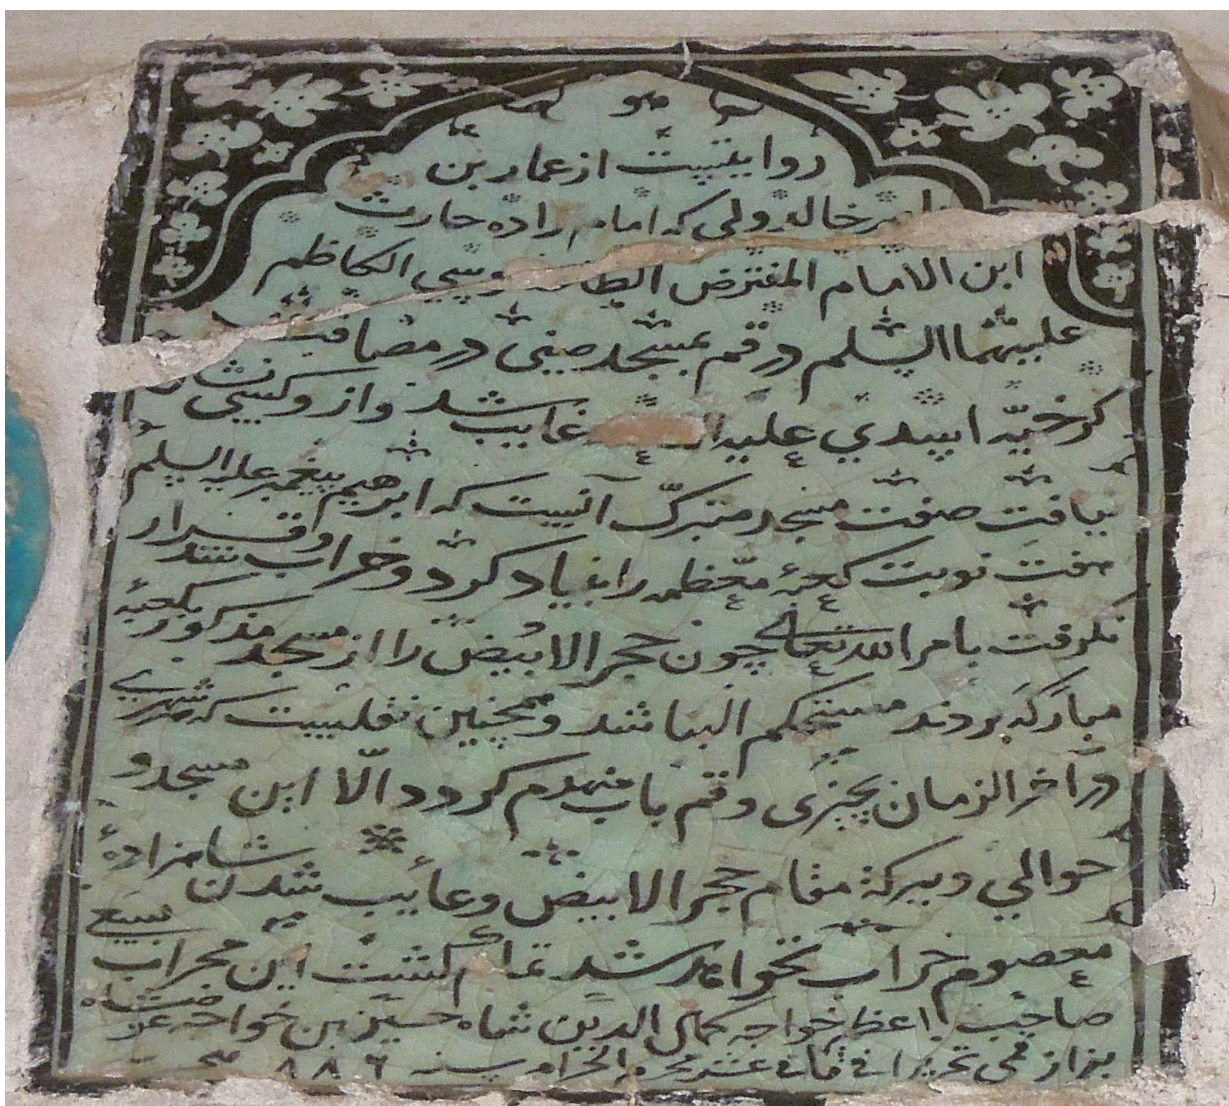 هو
روایتیست از عمار بن
خالد ولی که امام زاده حارث
ابن الامام المفترض موسی الکاظم
علیهما السلم در قم بمسجد صفی در مضافت
کرخیه علیه غایب شد و از و کسی نشان
نیافت صفت مسجد متبرک آنست که ابرهیم پیغمبر علیه السلم
هفت نوبت کعبهٔ معظمه را بنیاد کرد و خراب شد و قرار
نگرفت بامر الله تعالی چون حجر الابیض را از مسجد مذکور بکعبهٔ
مبارکه بردند مستحکم البنا شد و همچنین نقلیست که هر شهری
در آخر الزمان بچیزی و قم بآب منهدم کردد الّا این مسجد و
حوالی و ببرکة مقام حجر الابیض و غایب شدن شاهزادهٔ
معصوم خراب نخواهد شد تمام کشت این محراب بسیع
صاحب اعظم خواجه کمال الدین شاه حسین بن خواجه
بزاز قمی تحریرا فی محرم الحرام سنه ۸۸۶